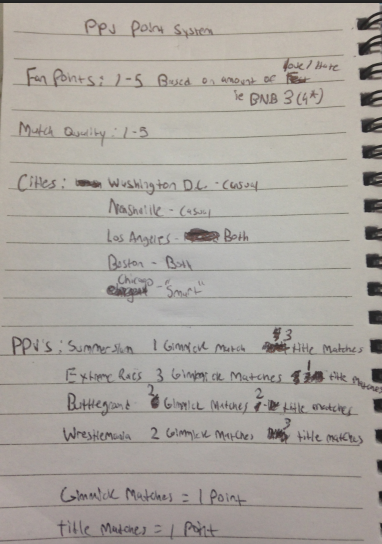 PPV Point System
Love/Hate
Fan Points: 1-5 Based on amount of
ie BNB 3 (4*)
Match Quality: 1-5
Cities: Washington D.C - Casual
Nashville - Casual
Los Angeles - Both
Boston - Both
Chicago - "Smart"
PPV's: Summerslam 1 Gimmick Match 3 title Matches
Extreme Rules 3 Gimmick Matches 1 title Matches
Battleground 2 Gimmick Matches 2 title matches
Wrestlemania 2 Gimmick Matches 3 title matches
Gimmick Matches = 1 Point
title Matches = 1 Point